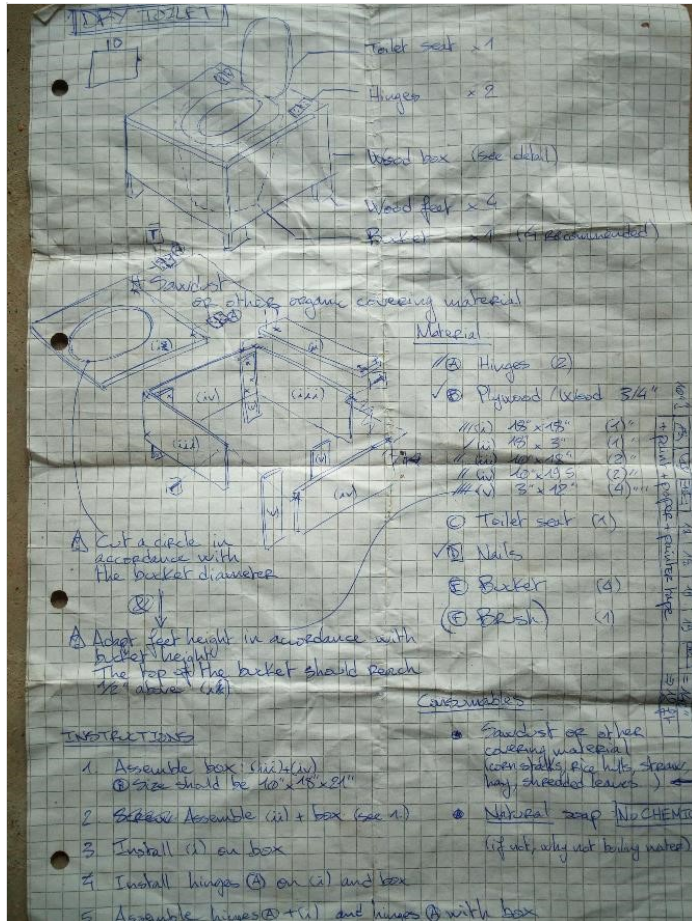 DRY TOILET
10
Toilet seat x 1
Hinges x 2
Wood box (see detail)
Wood feet x 4
Bucket x 1 (4 recommended)
Sawdust
or others organic covering material
Material
(A) Hinges (2)
(B) Plywood / Wood 3/4"
(i) 18" x 18" (1)
(ii) 18" x 3" (1)
(iii) 10" x 18" (2)
(iv) 10" x 19.5 (2)
(v) 3" x 12" (4)
(C) Toilet seat (1)
(D) Nails
(E) Bucket (4)
(F) Brush) (1)
+ paint + paper + painter tape
(ii)
(iv)
(iii)
(iii)
(v)
(v)
(iv)
Cut a circle in
accordance with
the bucket diameter
&
Adapt feet height in accordance with
bucket height
The top of the bucket should reach
1/2" above
Consumables
Sawdust or other
covering material
(corn stalks, rice hulls, straw,
hay, shredded leaves )
Natural soap No CHEMIC
(if not, why not boiling water)
INSTRUCTIONS
1. Assemble box: (iii)+(iv)
Size should be 10"x18"x21"
2 Assemble (ii) + box (see 1.)
3 Install (i) on box
4 Install hinges (A) on (i) and box
5 Assemble hinges (A) + (i) and hinges (A) with box